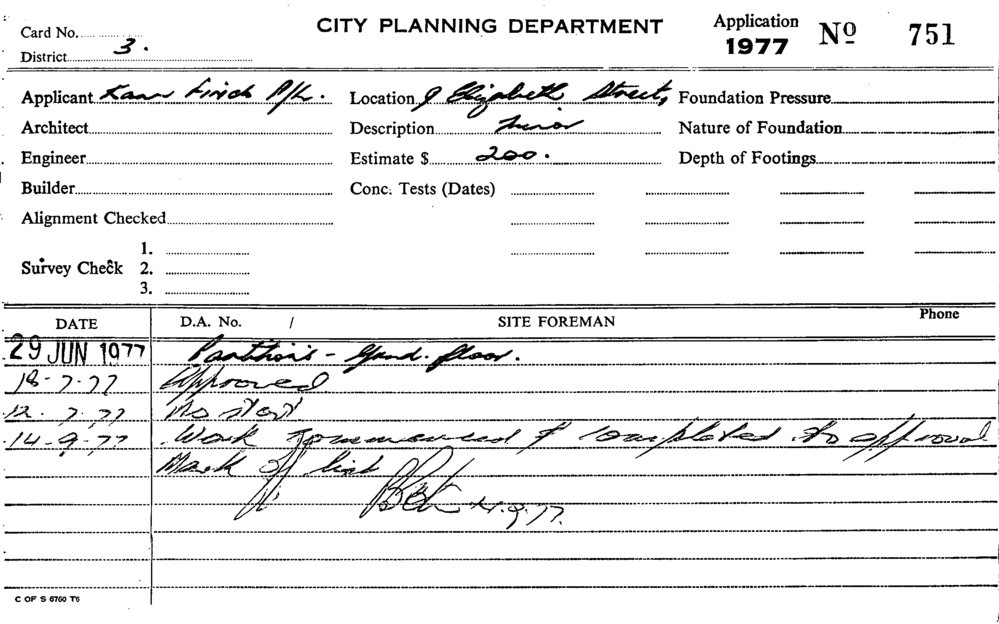 CITY PLANNING DEPARTMENT
Application
1977 Nº 751
Card No.
District 3.
Applicant Kann Finch P/L.
Architect
Engineer
Builder
Alignment Checked
Survey Check
1.
2.
3.
Location 9 Elizabeth Street,
Description Minor
Estimate $ 200.
Conc. Tests (Dates)
Foundation Pressure
Nature of Foundation
Depth of Footings
DATE D.A. No. / SITE FOREMAN Phone
29 JUN 1977 Partitions - Grnd. floor.
18-7-77 Approved
12.7.77 No start
14-9-77 Work commenced & completed to approval
Mark off list
14.9.77.
C OF S 6760 T6